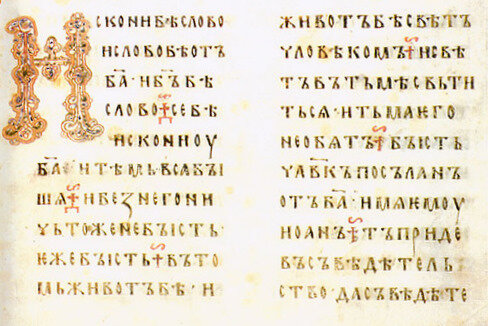 ИСКОНИБѢСЛОВО
ИСЛОВОБѢОТЪ
БА҃·ИБЪ҃БѢ
СЛОВО СЕБѢ
ИСКОНИОУ
БА҃·ИТѢМЬВСѦБꙐ
ШѦ ИБЕЗНЕГОНИ
ЧЬТОЖЕНЕБꙐСТЬ·
ЕЖЕБꙐСТЬ ВЪТО
МЬЖИВОТЪБѢ·И
ЖИВОТЪБѢСВѢТЪ
ЧЛОВѢКОМЪ ИСВѢ
ТЪВЪТЬМѢСВЬТИ
ТЬСѦ·ИТЬМАѤГО
НЕОБѦТЪ БꙐСТЬ
ЧЛ҃ВКЪПОСЪЛАНЪ
ОТЪБА҃·ИМѦѤМОУ
ИОАНЪ ТЪПРИДЕ
ВЪСЪВѢДѢТЕЛЬ
СТВО·ДАСЪВѢДѢТЕ